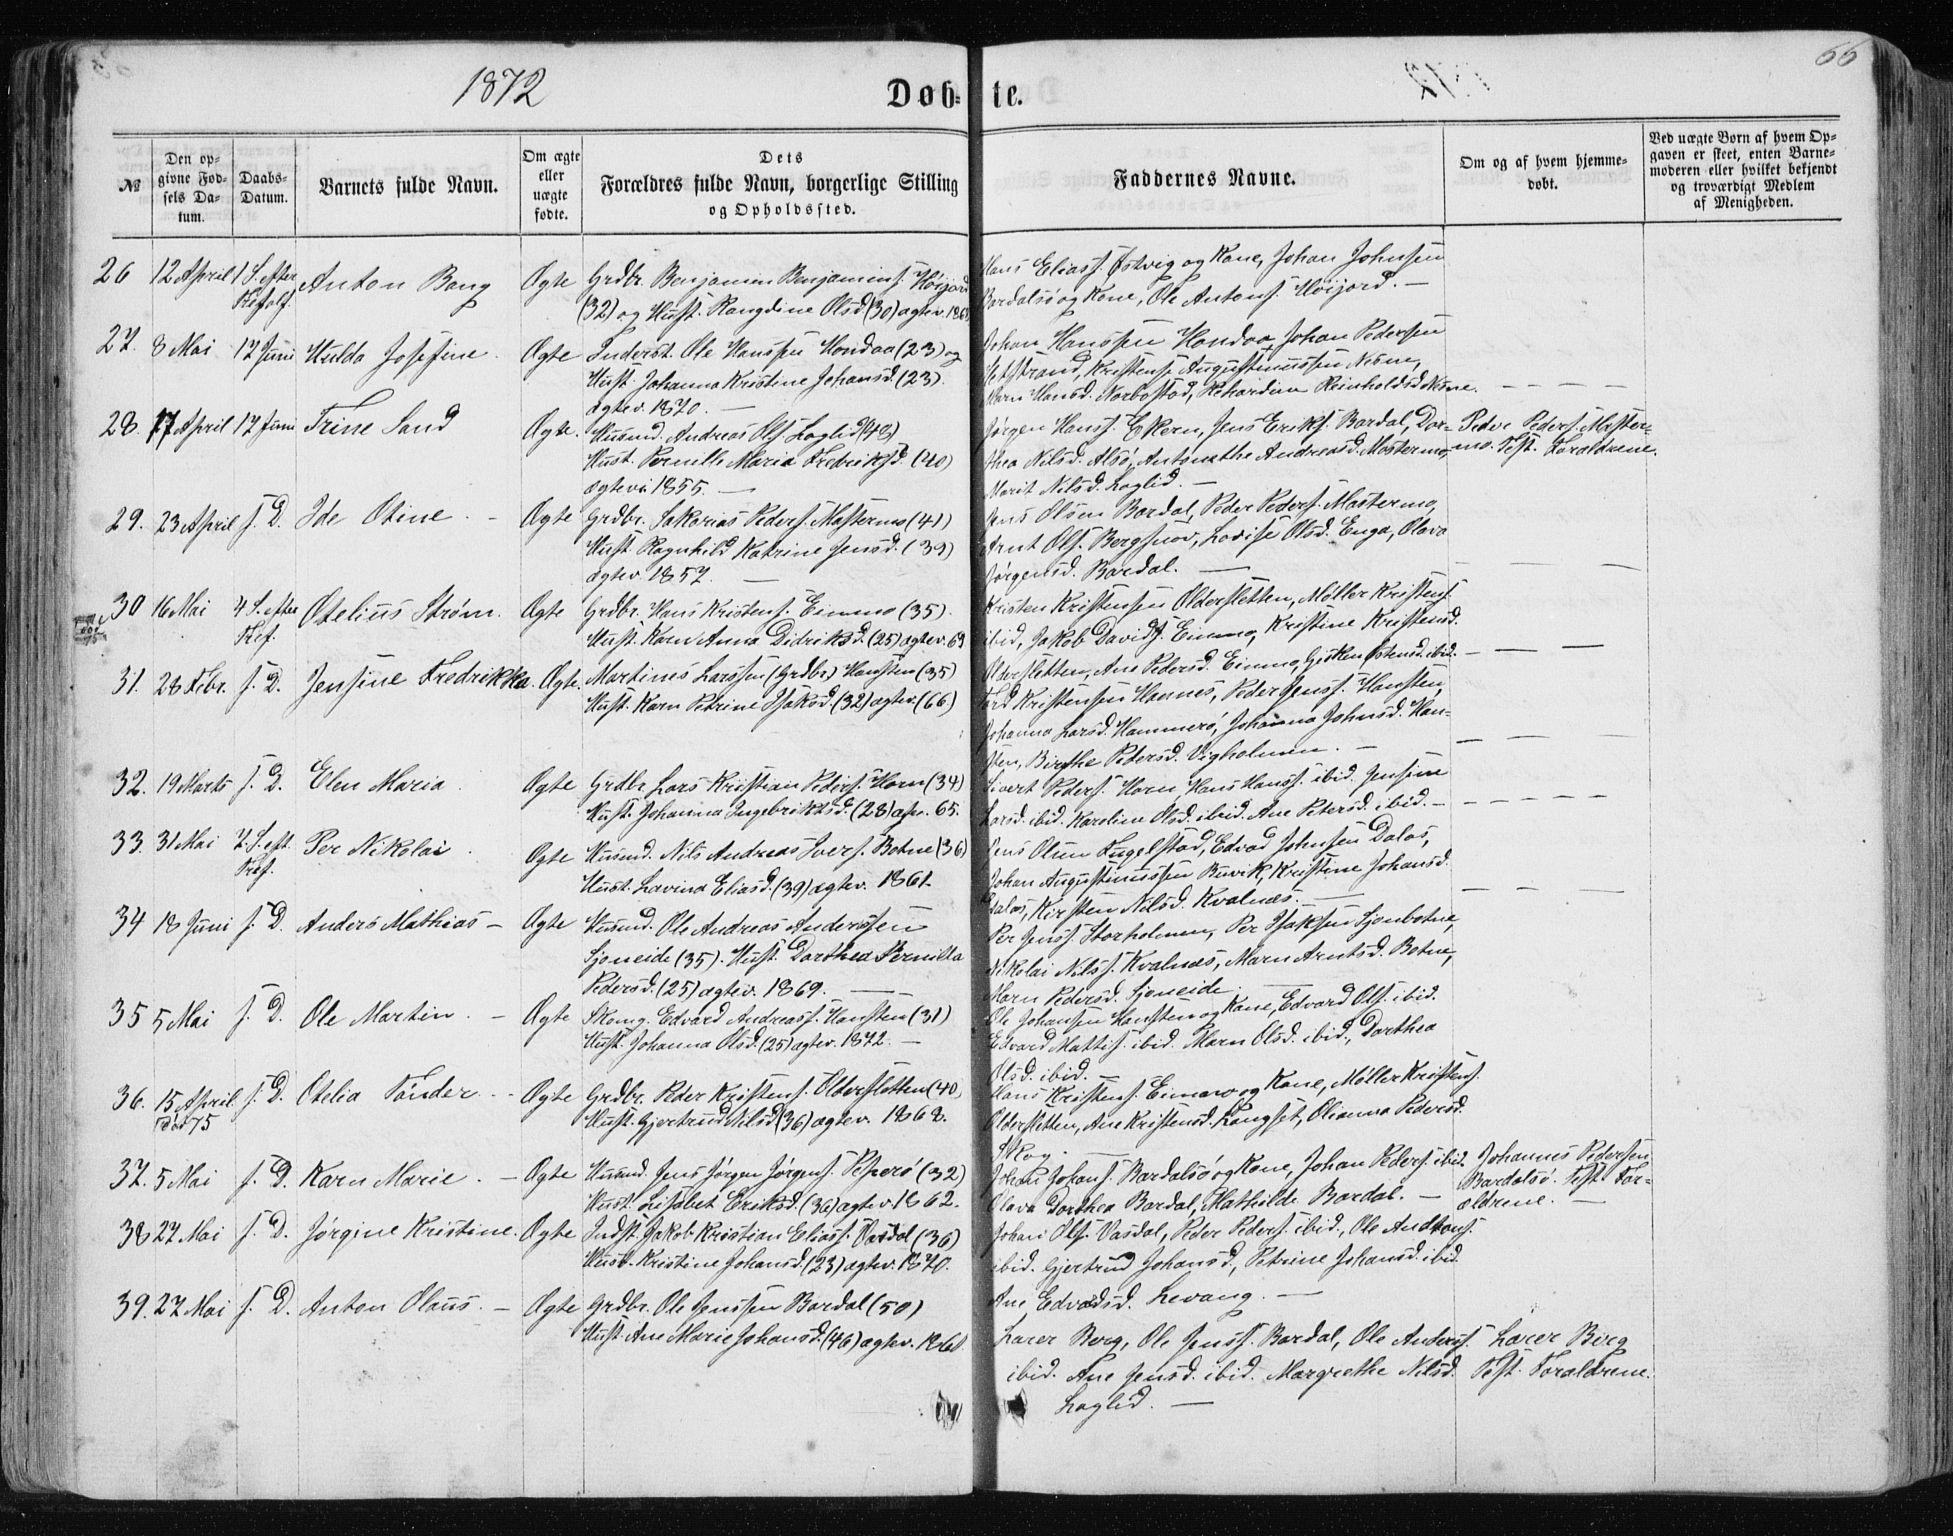 1872
Døb-
te.
66
№
Den op-
givne Fød-
sels Da-
tum.
Daabs-
Datum.
Barnets fulde Navn.
Om ægte
eller
uægte
fødte.
Dets
Forældres fulde Navn, borgerlige Stilling
og Opholdssted.
Faddernes Navne.
Om og af hvem hjemme-
døbt.
Ved uægte Børn af hvem Op-
gaven er skeet, enten Barne-
moderen eller hvilket bekjendt
og troværdigt Medlem
af Menigheden.
26 12 April 1 S. efter Anton Bang Ægte Grdbr. Benjamin Benjamins. Høijord
(32) og Hust. Rangdine Olsd. (30) ægtev.
Hans Eliass. Østvig og Kone, Johan Johnsen
Bardalsø og Kone, Ole Antons. Høijord. —
27. 8 Mai 17 Juni Hulda Josefine. Ægte Inderst. Ole Hanssen Hondaa (23) og
Hust. Johanna Kristine Johansd. (23).
ægtev. 1870. —
Johan Hanssen Hondaa, Johan Pedersen
Augustinussen Nesne,
Marn Hansd. Rikardine Reinholdsd. Nesne. — — — —
28. 17 April 17 Juni Trine Sand Ægte. Husmd. Andreas Ols. Laglid (48)
Hust. Pernille Maria Fredriksd. (40)
ægtevi 1855. —
Jørgen Hanss. Ekern, Jens Eriks. Bardal, Dor-
thea Nilsd. Alsø, Andreasd. Mastermo,
Marit Nilsd. Laglid. —
Peder Peders. Master-
mo. Test. Forældrene.
29. 23 April s. D. Ide Otine. — Ægte Grdbr. Sakarias Peders. Mastermo (41)
Hust. Ragnhild Katrine Jensd. (39)
ægtev. 1857. —
Jens Olsen Bardal, Peder Peders. Mastermo,
Arnt Ols. Lovise Olsd. Enga, Olava
Jørgensd. Bardal. — — — —
30 16 Mai 4 S. efter Otelius Strøm. Ægte Grdbr. Hans Kristens. Einmo (35).
Hust. Karn Anna Didriksd. (25) ægtev. 69
Kristen Kristensen Oldersletten, Møller Kristens.
ibid, Jakob Davids. Einmo, Kristine Kristensd.
Oldersletten, Ane Pedersd. Einmo, ibid. — — —
31. 28 Febr. s. D. Jensine Fredrikka. Ægte. Martines Larssen (Grdbr.) Hansten (35)
Hust. Karn Petrine Isaksd. (32) ægtev. (66)
Kristensen Hannes, Peder Jenss. Hansten,
Johanna Larsd. Hammerø, Johanna Johnsd. Han-
sten, Birthe Pedersd. Vigholmen. — — — —
32. 19 Marts s. D. Elen Maria. Ægte Grdbr. Lars Kristian Peders. Horn (34)
Hust. Johanna Ingebriktsd. (28) 65.
Sivert Peders. Horn, Hans Hanss. ibid. Jensine
Larsd. ibid. Karoline Olsd. ibid. Ane Petersd. ibid. — — — —
33. 31 Mai 7. S. eft. Per Nikolai. Ægte Husmd. Nils Andreas Ivers. Botne (36)
Hust. Lavina Eliasd. (39) ægtev. 1861.
Jens Olsen Fugelstad, Edvad Johnsen Dalos,
Johan Augustinussen Buvik, Kristine Johansd.
Dalos, Kirsten Nilsd. Kvalnæs. — — — —
34 18 Juni s. D. Anders Mathias — Ægte Husmd. Ole Andreas Anderssen
Sjoneide (35). Hust. Dorthea Pernilla
Pedersd. (25) ægtev. 1869. —
Per Jenss. Storholmen, Per Isaksen Sjonbotne,
Nikolai Nilss. Kvalnæs, Marn Arntsd. Botne,
Marn Pedersd. Sjoneide. —
35 5 Mai s. D. Ole Martin. — Ægte Skomg. Edvard Andreass. Hansten (31)
Hust. Johanna Olsd. (25) ægtev. 1872. —
Ole Johansen Hansten og Kone, Edvard Ols. ibid.
Edvard Mattis. ibid. Marn Olsd. ibid., Dorthea
Olsd. ibid. —
36. 15 April s. D. Otelia Tønder. — Ægte Grdbr. Peder Kristens. Oldersletten (40)
død 75
Hust. Gjertrud Nilsd. (36) ægtev. 1868.
Hans Kristens. Einmo og Kone, Møller Kristens.
Oldersletten, Ane Kristensd. Langset, Olianna Pedersd.
Skog. —
37. 5 Mai s. D. Karn Marie. — Ægte Husmd. Jens Jørgen Jørgens. (32)
Hust. Eriksd. (36) ægtev 1862.
Johan Johans. Bardalsø og Kone, Johan Peders. ibid.
Olava Dorthea Bardal, Mathilde Bardal. —
Johannes Pedersen
Bardalsø. Test. For-
ældrene. —
38 27 Mai s. D. Jørgine Kristine. Ægte Indst. Jakob Kristian Eliass. Vasdal (36)
Hust. Kristine Johansd. (23) ægtev. 1870.
Johan Ols. Vasdal, Peder Peders. ibid., Ole
ibid. Gjertrud Johansd., Petrine Johansd. ibid.
Ane Edvardsd. Levang. —
39. 27 Mai s. D. Anton Olaus. — Ægte Grdbr. Ole Jenssen Bardal (50)
Hust. Ane Marie Johansd. (46) ægtev.
Lærer Berg, Ole Jenss. Bardal, Ole Anderss.
ibid. Ane Jensd. ibid. Margrethe Nilsd.
Laglid. —
Lærer Berg
Test. Forældrene.